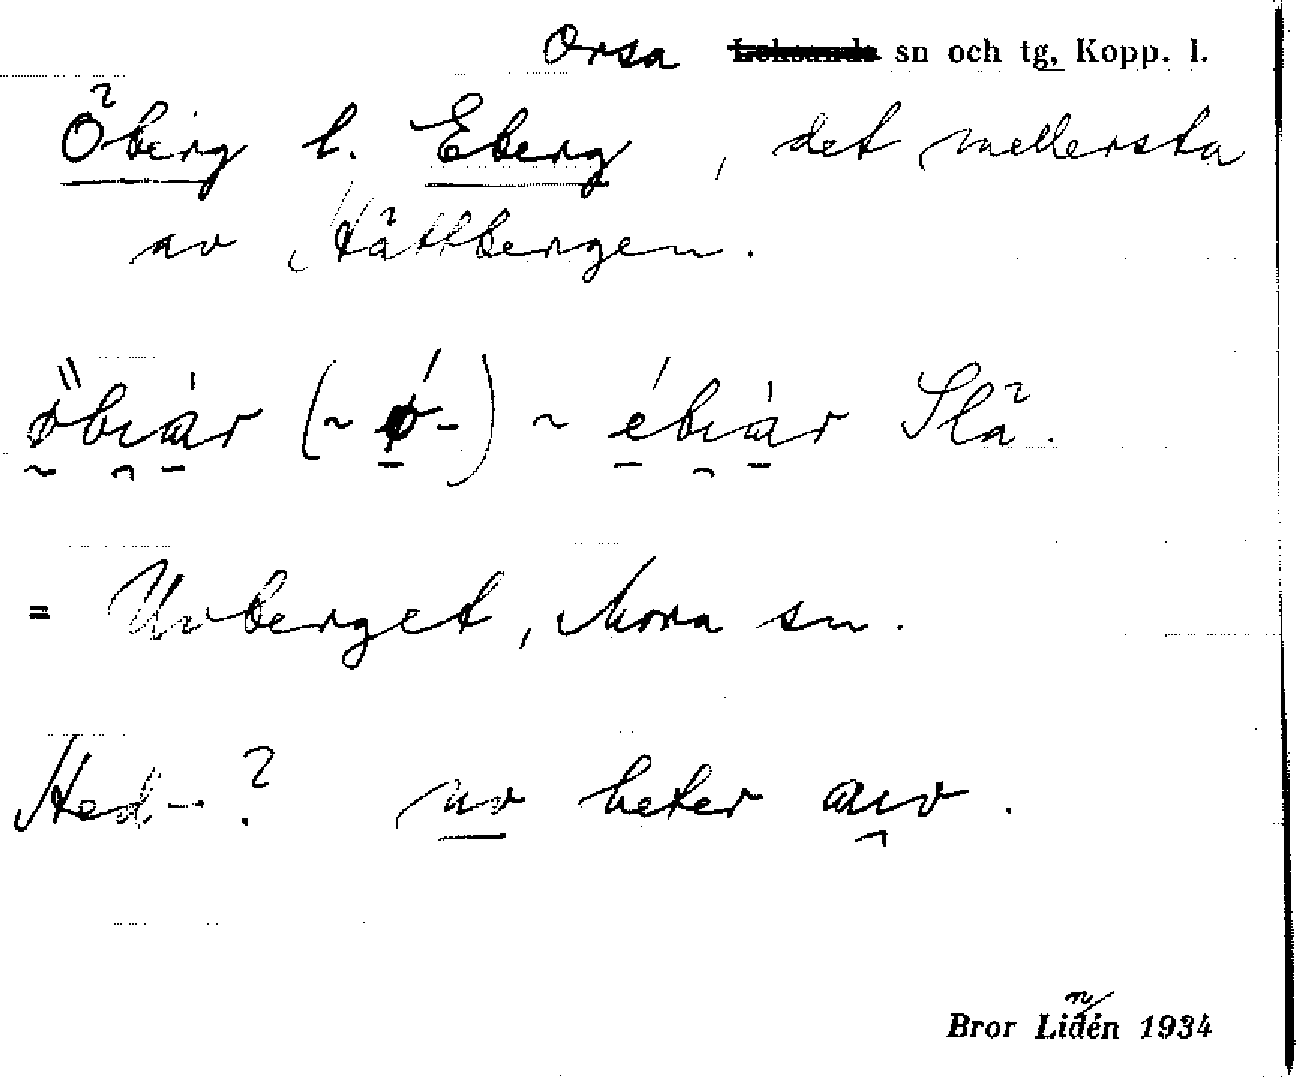 Orsa ~~Leksands~~ sn och tg, Kopp. l.
Öberg l. Eberg, det mellersta
av Håttbergen.
= Uvberget, Mora sn.
Hed-? uv heter auv.
Bror Lidén 1934